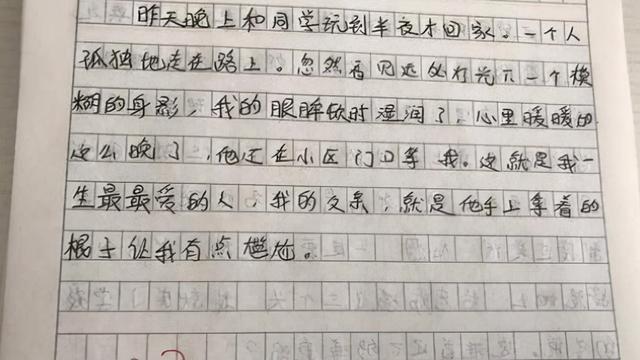 昨天晚上和同学玩到半夜才回家。一个人
孤独地走在路上。忽然看见远处灯光下一个模
糊的身影，我的眼眸顿时湿润了，心里暖暖的
这么晚了，他还在小区门口等我。这就是我一
生最最爱的人，我的父亲，就是他手上拿着的
棍子让我有点尴尬。